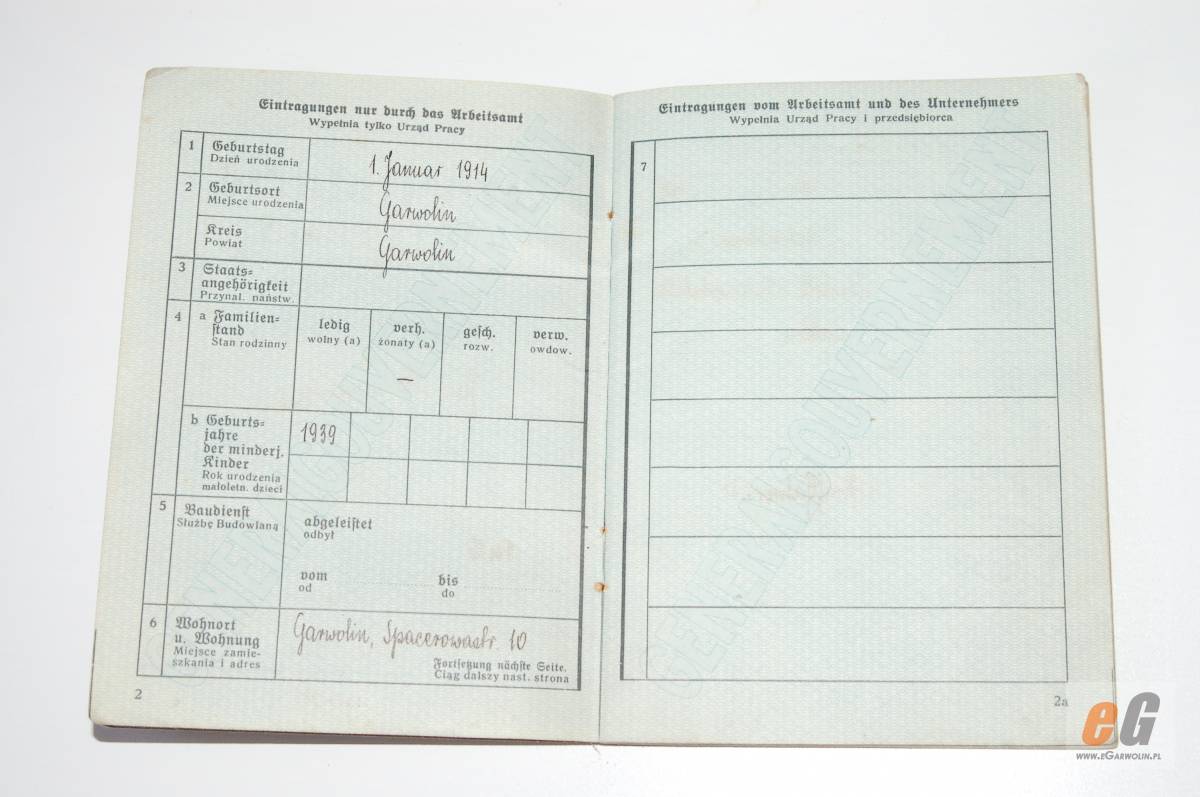 Eintragungen nur durch das Arbeitsamt
Wypełnia tylko Urząd Pracy
1 Geburtstag
Dzień urodzenia
1. Januar 1914
2 Geburtsort
Miejsce urodzenia
Garwolin
Kreis
Powiat
Garwolin
3 Staats=
angehörigkeit
Przynal. państw.
4 a Familien=
stand
Stan rodzinny
ledig
wolny (a)
verh.
żonaty (a)
–
gesch.
rozw.
verw.
owdow.
b Geburts=
jahre
der minderj.
Kinder
Rok urodzenia
małoletn. dzieci
1939
5 Baudienst
Służbę Budowlaną
abgeleistet
odbył
vom
od
bis
do
6 Wohnort
u. Wohnung
Miejsce zamie-
szkania i adres
Garwolin, Spacerowastr. 10
Fortsetzung nächste Seite.
Ciąg dalszy nast. strona
2
GENERALGOUVERNEMENT
Eintragungen vom Arbeitsamt und des Unternehmers
Wypełnia Urząd Pracy i przedsiębiorca
7
GENERALGOUVERNEMENT
2a
eG
www.eGarwolin.pl